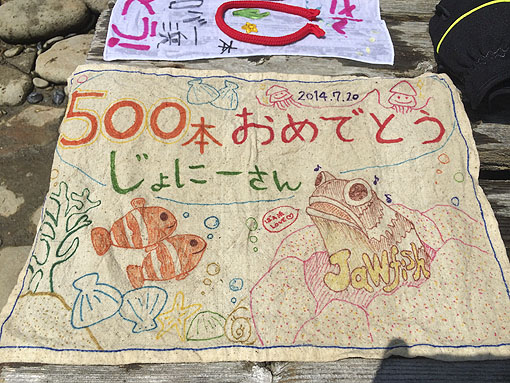 さん
2014.7.20
500本 おめでとう
じょにーさん
LOVE♡
Jawfish